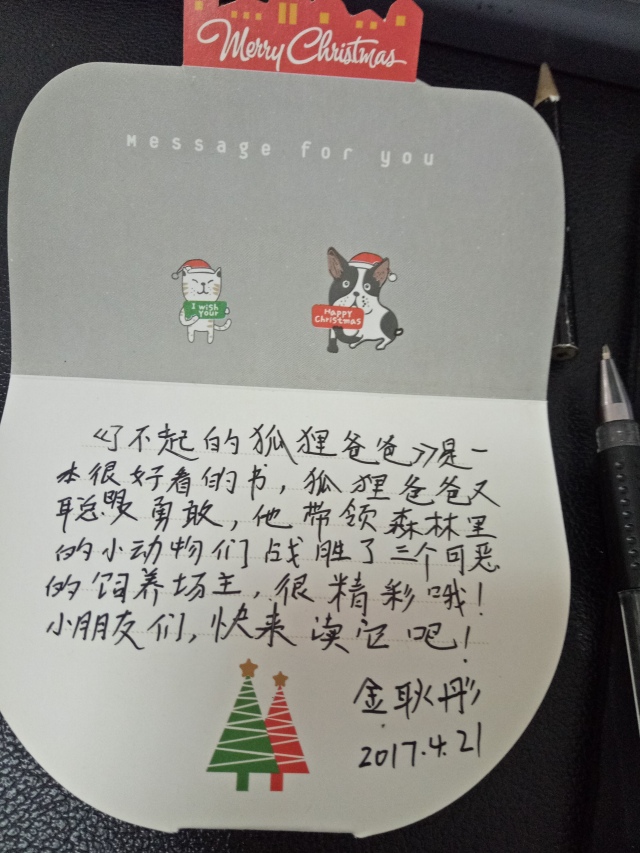 Merry Christmas
Message for you
I wish
your
Happy
Christmas
《了不起的狐狸爸爸》是一
本很好看的书，狐狸爸爸又
聪明又勇敢，他带领森林里
的小动物们战胜了三个可恶
的饲养场主，很精彩哦！
小朋友们，快来读它吧！
金耿彤
2017.4.21